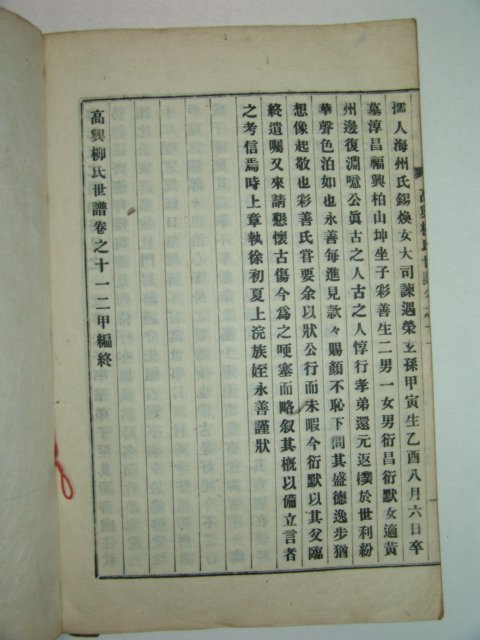 孺人海州氏錫煥女大司諫遇榮玄孫甲寅生乙酉八月六日卒
墓淳昌福興柏山坤坐子彩善生二男一女男衍昌衍默女適黃
州邊復淵噫公眞古之人古之人惇行孝弟還元返樸於世利紛
華聲色泊如也永善每進見款々賜顔不恥下問其盛德逸步猶
想像起敬也彩善氏嘗要余以狀公行而未暇今衍默以其父臨
終遺囑又來請懇懷古傷今爲之哽塞而略叙其槪以備立言者
之考信焉時上章執徐初夏上浣族姪永善謹狀
高興柳氏世譜卷之十一二甲編終